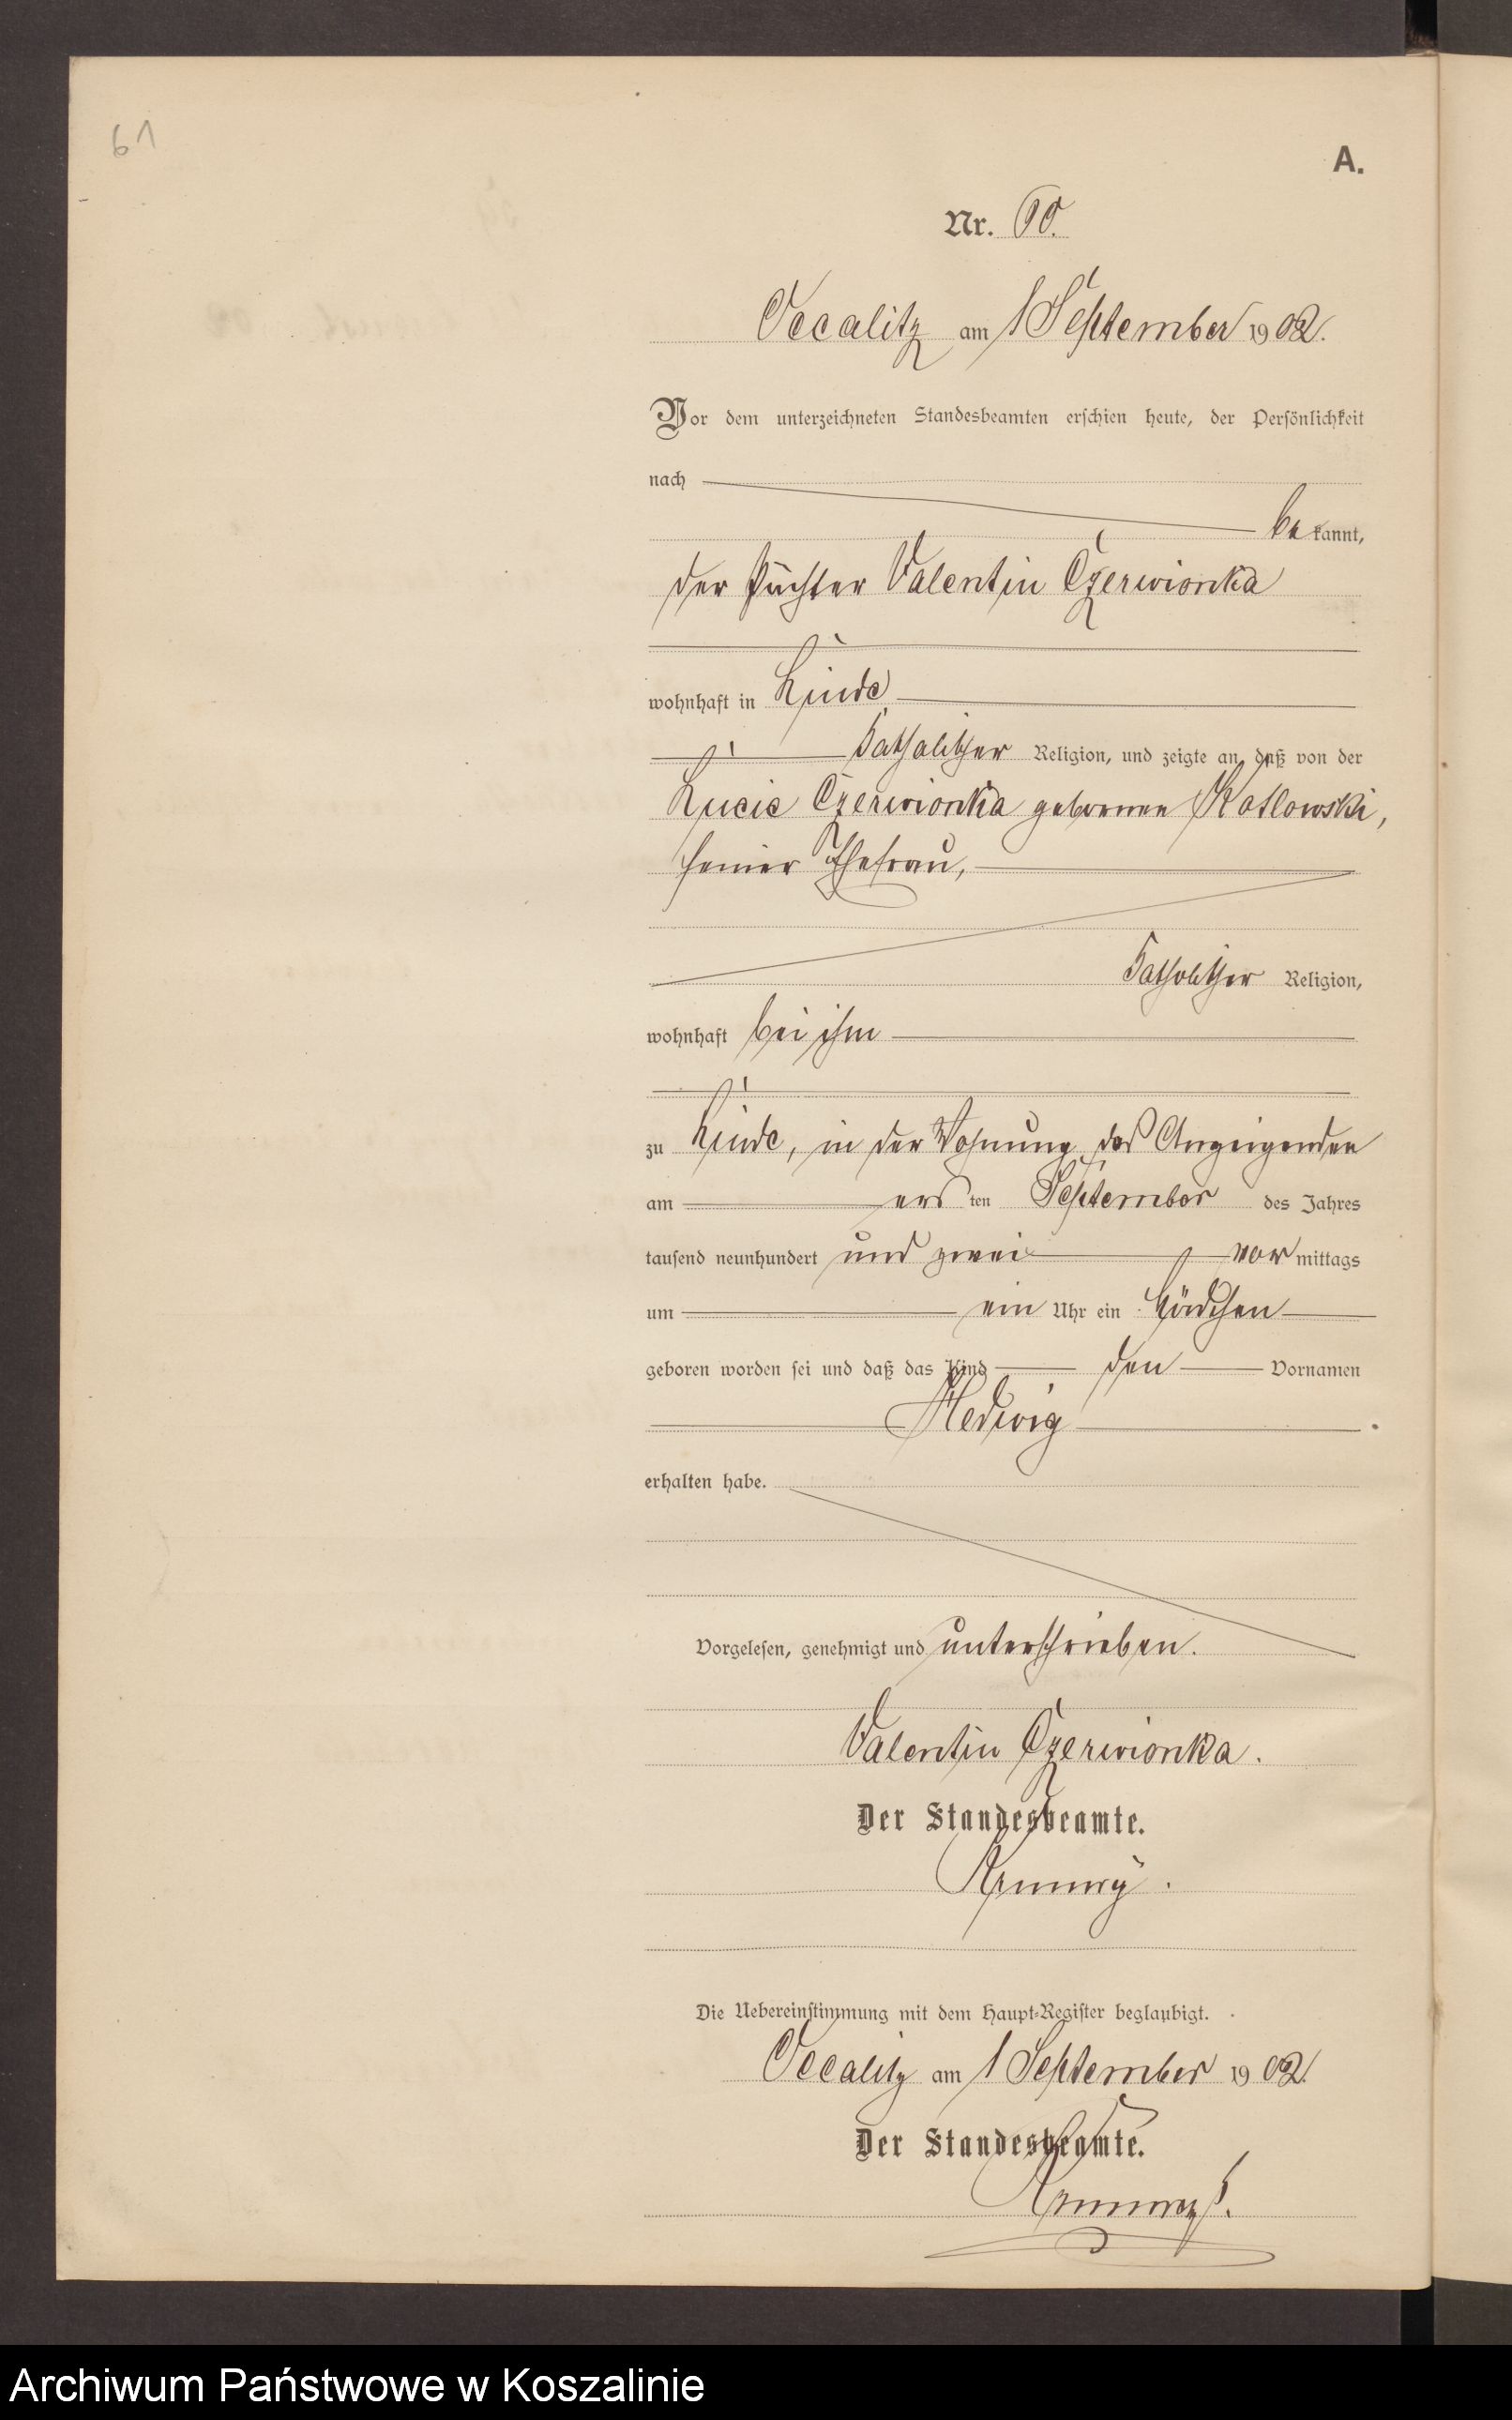 61
A.
Nr. 60.
Oecalitz am 1 September 1902.
Vor dem unterzeichneten Standesbeamten erschien heute, der Persönlichkeit
nach
be kannt,
der Pächter Valentin Czerwionka
wohnhaft in Linde
katholischer Religion, und zeigte an, daß von der
Lucie Czerwionka geborenen Kotlowski,
seiner Ehefrau,
katholischer Religion,
wohnhaft bei ihm
zu Linde, in der Wohnung des Anzeigenden
am ers ten September des Jahres
tausend neunhundert und zwei vor mittags
um ein Uhr ein Mädchen
geboren worden sei und daß das Kind den Vornamen
Hedwig
erhalten habe.
Vorgelesen, genehmigt und unterschrieben.
Valentin Czerwionka.
Der Standesbeamte.
Die Uebereinstimmung mit dem Haupt-Register beglaubigt.
Oecalitz am 1 September 1902.
Der Standesbeamte.
Archiwum Państwowe w Koszalinie